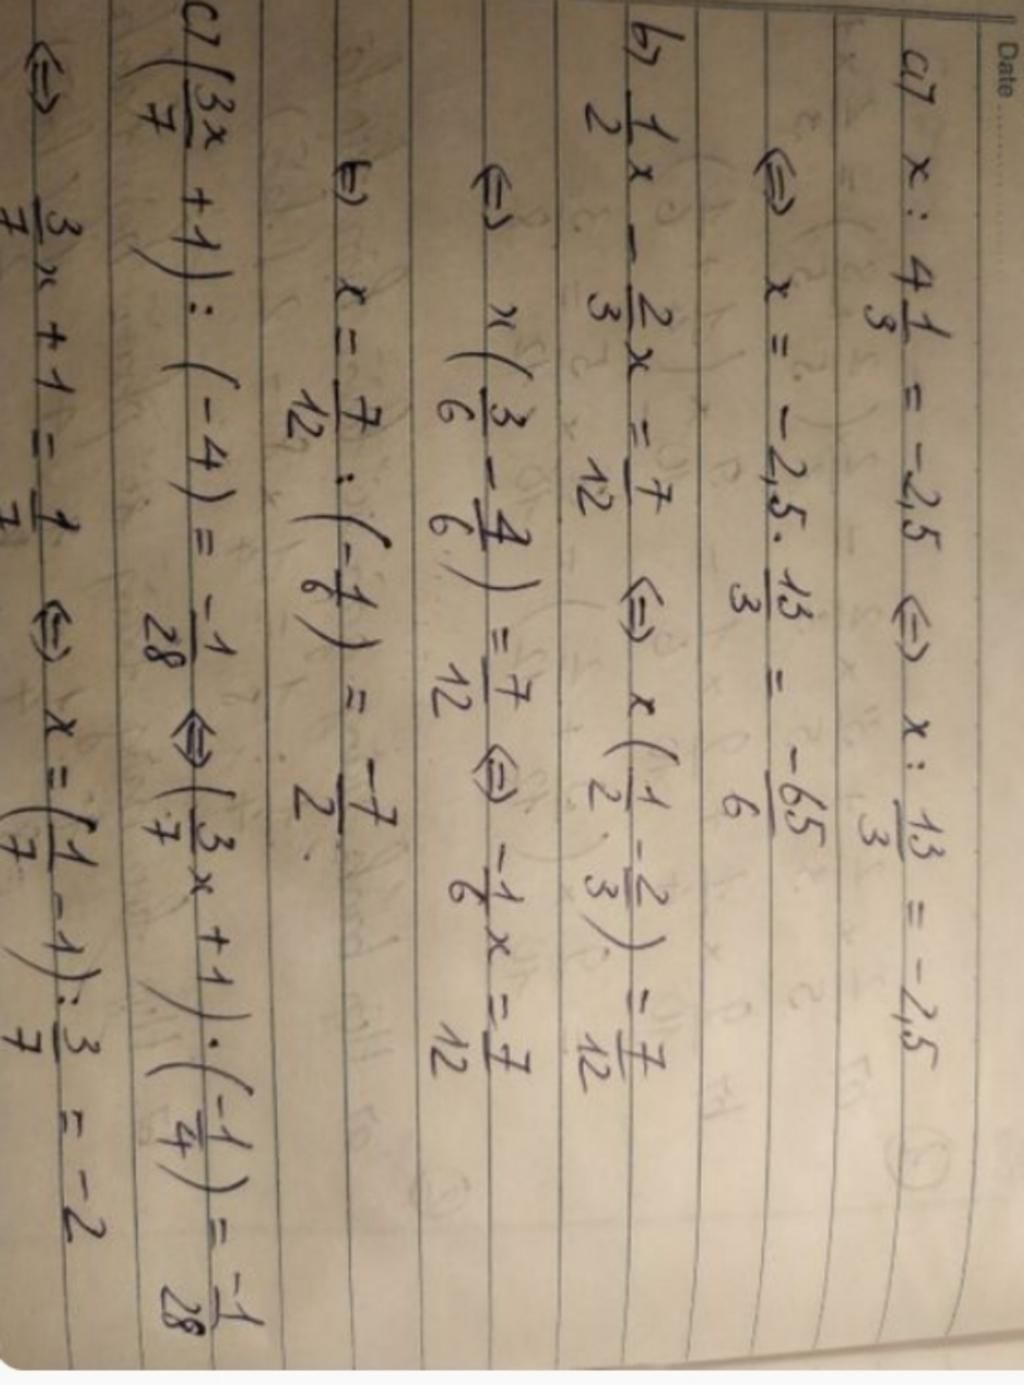 Date
a) x : 4 1/3 = -2,5 ⇔ x : 13/3 = -2,5
⇔ x = -2,5 . 13/3 = -65/6
b) 1/2 x - 2/3 x = 7/12 ⇔ x(1/2 - 2/3) = 7/12
⇔ x(3/6 - 4/6) = 7/12 ⇔ -1/6 x = 7/12
⇔ x = 7/12 : (-1/6) = -7/2.
c) (3x/7 + 1) : (-4) = -1/28 ⇔ (3/7 x + 1) . (-1/4) = -1/28
⇔ 3/7 x + 1 = 1/7 ⇔ x = (1/7 - 1) : 3/7 = -2